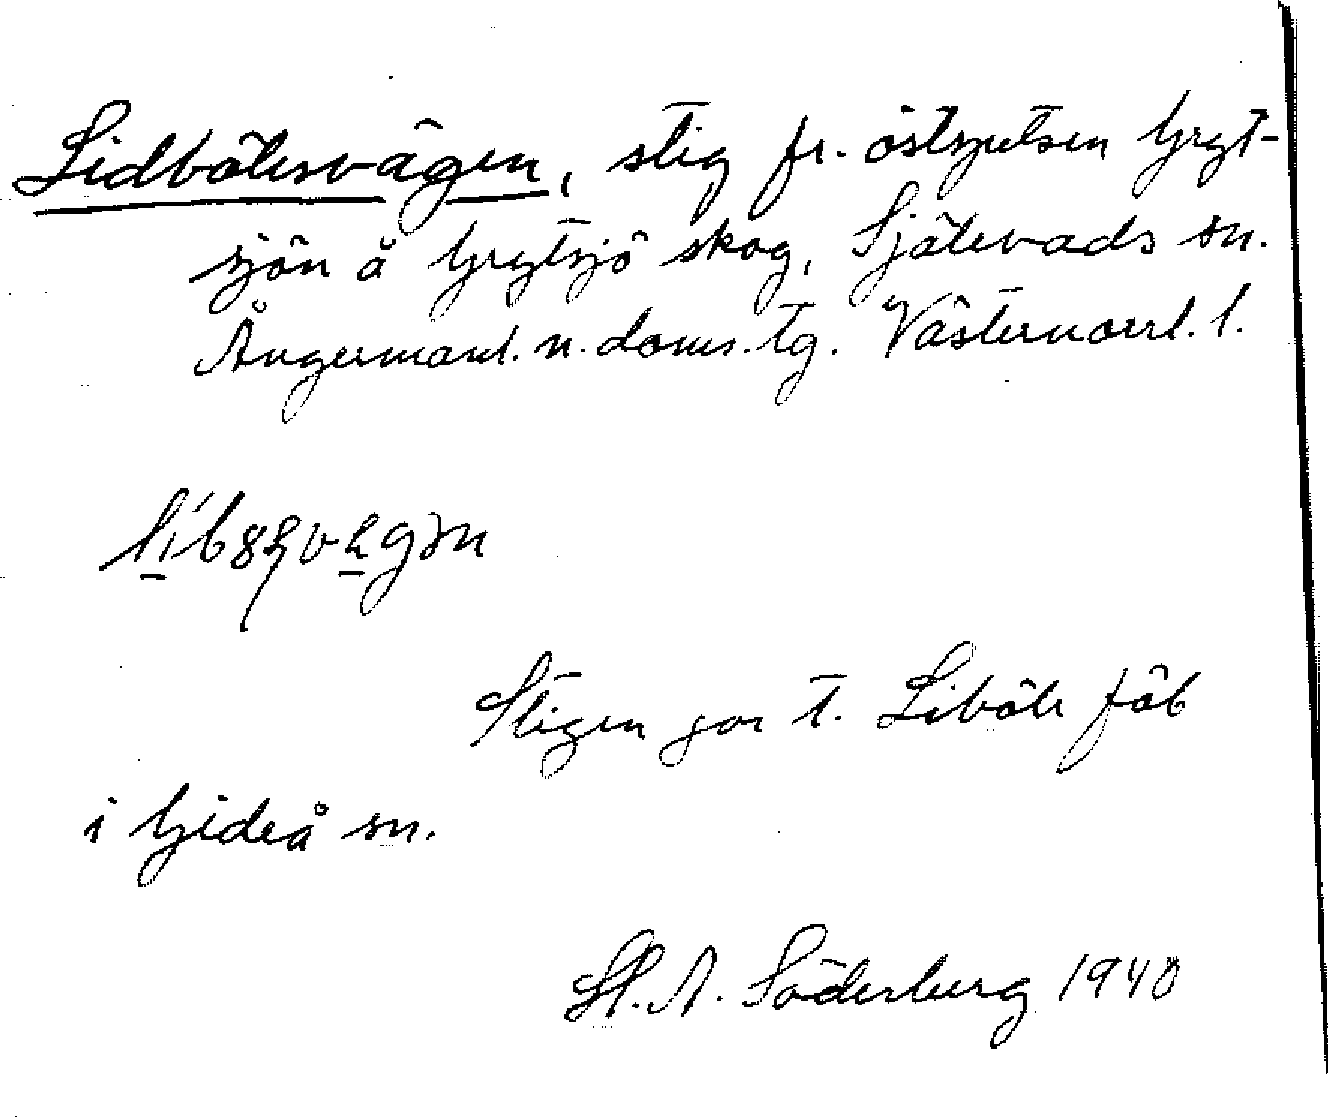 Lidbölesvägen, stig fr. östspetsen Gryt-
sjön å Grytsjö skog, Själevads sn.
Ångermanl. n. doms. tg. Västernorrl. l.
Stigen går t. Liböle fäb
i Gideå sn.
St. A. Söderberg 1940